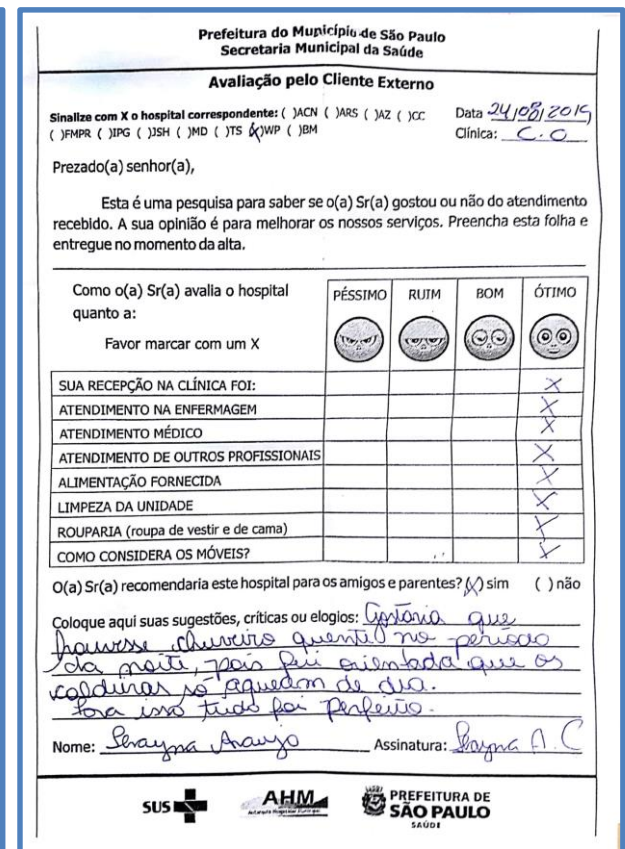 Prefeitura do Município de São Paulo
Secretaria Municipal da Saúde
Avaliação pelo Cliente Externo
Sinalize com X o hospital correspondente: ( )ACN ( )ARS ( )AZ ( )CC Data 24/08/2019
( )FMPR ( )IPG ( )JSH ( )MD ( )TS (X)WP ( )BM Clínica: C.O
Prezado(a) senhor(a),
Esta é uma pesquisa para saber se o(a) Sr(a) gostou ou não do atendimento
recebido. A sua opinião é para melhorar os nossos serviços. Preencha esta folha e
entregue no momento da alta.
Como o(a) Sr(a) avalia o hospital
quanto a:
Favor marcar com um X
PÉSSIMO RUIM BOM ÓTIMO
SUA RECEPÇÃO NA CLÍNICA FOI: X
ATENDIMENTO NA ENFERMAGEM X
ATENDIMENTO MÉDICO X
ATENDIMENTO DE OUTROS PROFISSIONAIS X
ALIMENTAÇÃO FORNECIDA X
LIMPEZA DA UNIDADE X
ROUPARIA (roupa de vestir e de cama) X
COMO CONSIDERA OS MÓVEIS? X
O(a) Sr(a) recomendaria este hospital para os amigos e parentes? (X) sim ( ) não
Coloque aqui suas sugestões, críticas ou elogios: Gostaria que
houvesse chuveiro quente no período
da noite, pois fui orientada que os
caldeiras só aquecem de dia.
Fora isso tudo foi perfeito.
Nome: Araujo Assinatura:
SUS AHM PREFEITURA DE
SÃO PAULO
SAÚDE